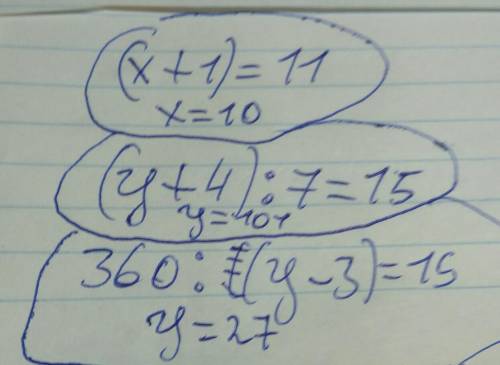 (x+1)=11
x=10
(y+4):7=15
y=101
360:(y-3)=15
y=27